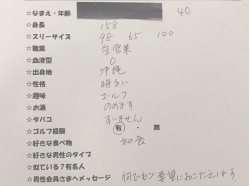 ☆なまえ・年齢 40
☆身長 158
☆スリーサイズ 98 65 100
☆職業 自営業
☆血液型 O
☆出身地 沖縄
☆性格 明るい
☆趣味 ゴルフ
☆お酒 のめます
☆タバコ すいません
☆ゴルフ経験 有・無
☆好きな食べ物 和食
☆好きな男性のタイプ
☆似ている?有名人
☆男性会員さまへメッセージ 何でもご要望におこたえします